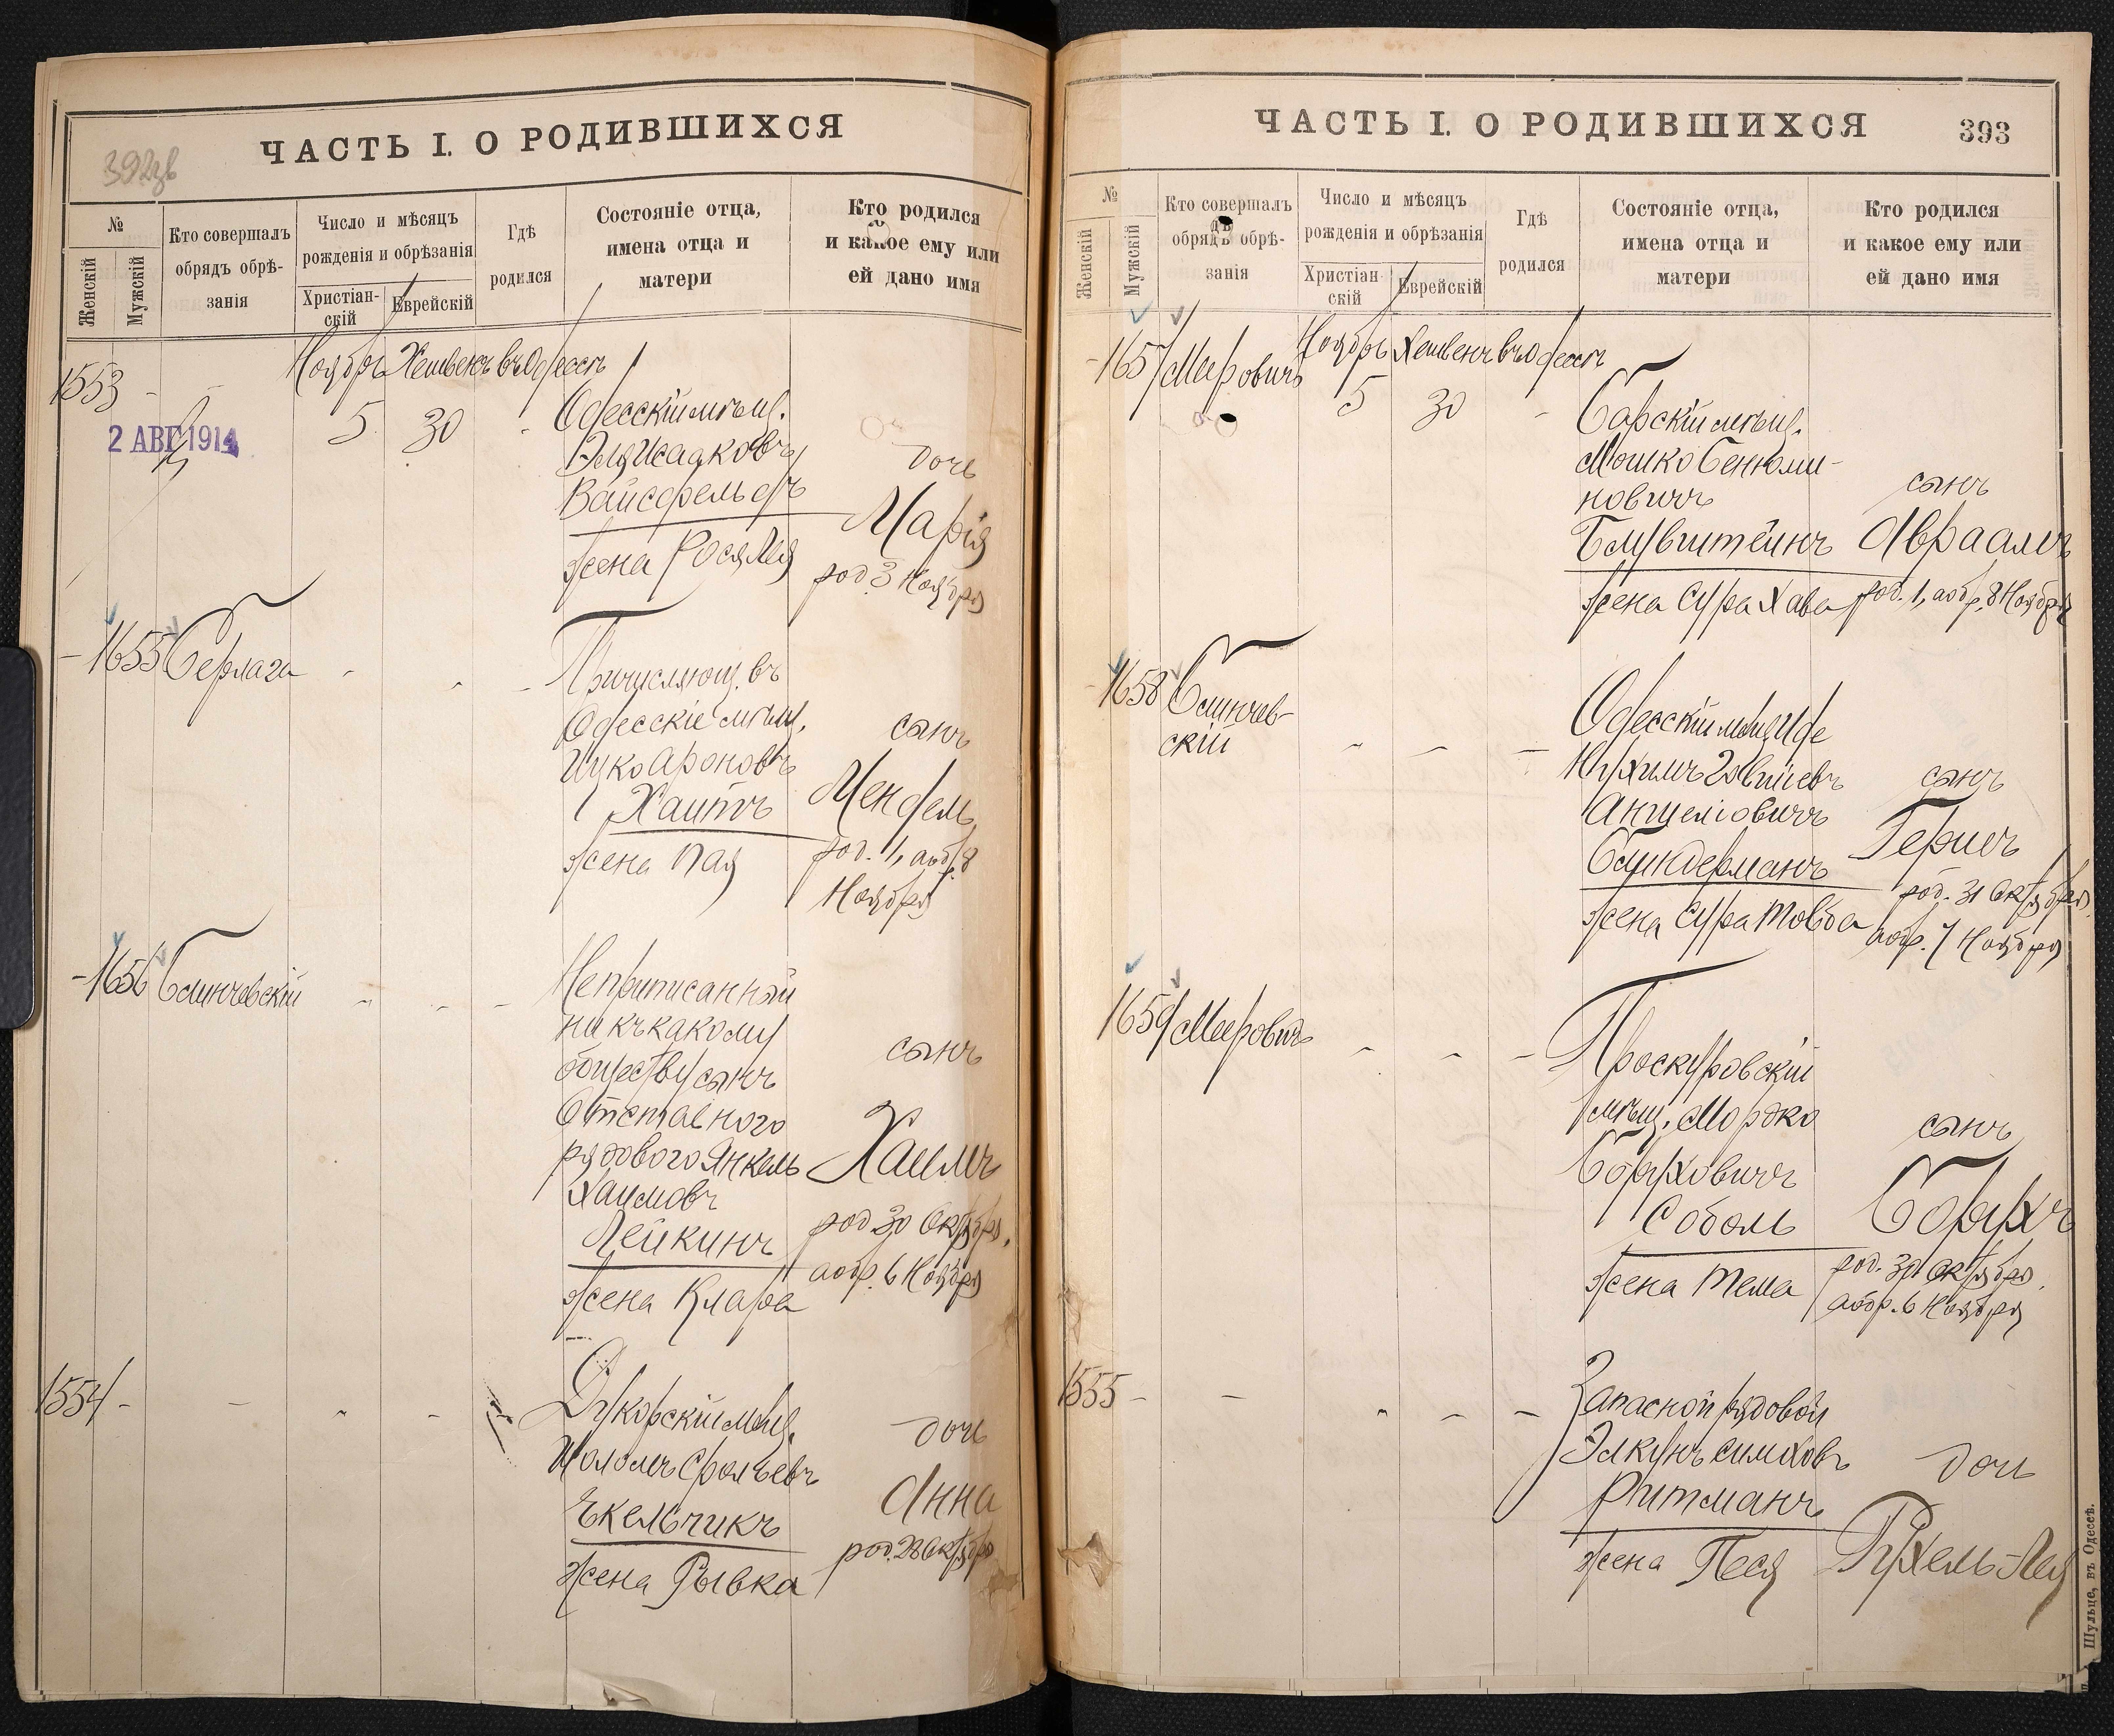 ЧАСТЬ I. О РОДИВШИХСЯ
392
№
Женскій
Мужскій
Кто совершалъ
обрядъ обрѣ-
занія
Число и мѣсяцъ
рожденія и обрѣзанія
Христіан-
скій
Еврейскій
Гдѣ
родился
Состояніе отца,
имена отца и
матери
Кто родился
и какое ему или
ей дано имя
Ноябрь Хешвенъ въ Одессѣ
1553 -
2 АВГ 1914
5 30
Одесскій мѣщ.
Эля Исааковъ
Вайсфельдъ
жена Рося Лея
дочь
Марія
род. 3 Ноября
1655 Серлаги
Причисляющ. въ
Одесскіе мѣщ.
Ицко Ароновъ
Хаитъ
жена Пая
сынъ
Мендель
род. 1, аобр. 8
Ноября
1656 Блинчевскій
Неприписанный
ни къ какому
обществу сынъ
Отставного
рядового Янкель
Хаимовъ
Лейкинъ
жена Клара
сынъ
Хаимъ
род 30 Октября,
аобр. 6 Ноября
1554 -
Дукорскій мѣщ.
Шоломъ Срольевъ
Екельчикъ
жена Рывка
дочь
Анна
род. 28 Октября
ЧАСТЬ I. О РОДИВШИХСЯ
393
№
Женскій
Мужскій
Кто совершалъ
обрядъ обрѣ-
занія
Число и мѣсяцъ
рожденія и обрѣзанія
Христіан-
скій
Еврейскій
Гдѣ
родился
Состояніе отца,
имена отца и
матери
Кто родился
и какое ему или
ей дано имя
Ноябрь Хешвенъ въ Одессѣ
1657 Мееровичъ
5 30
Барскій мѣщ.
Мошко Бенюми-
новичъ
Блувштейнъ
жена Сура Хава
сынъ
Авраамъ
род. 1, аобр. 8 Ноября
1658 Блинчев-
скій
Одесскій мѣщ. Иде
Нухимъ Товшіевъ
Аншеліовичъ
Блиндерманъ
жена Сура Товба
сынъ
Гершъ
род. 31 Октября
аобр. 7 Ноября
1659 Мееровичъ
Проскуровскій
мѣщ. Мордко
Боруховичъ
Соболь
жена Тема
сынъ
Борухъ
род. 30 Октября.
аобр. 6 Ноября
1555 -
Запасной рядовой
Элкунъ Симховъ
Ритманъ
жена Песя
дочь
Рухель-Лея
Шульце, въ Одессѣ.